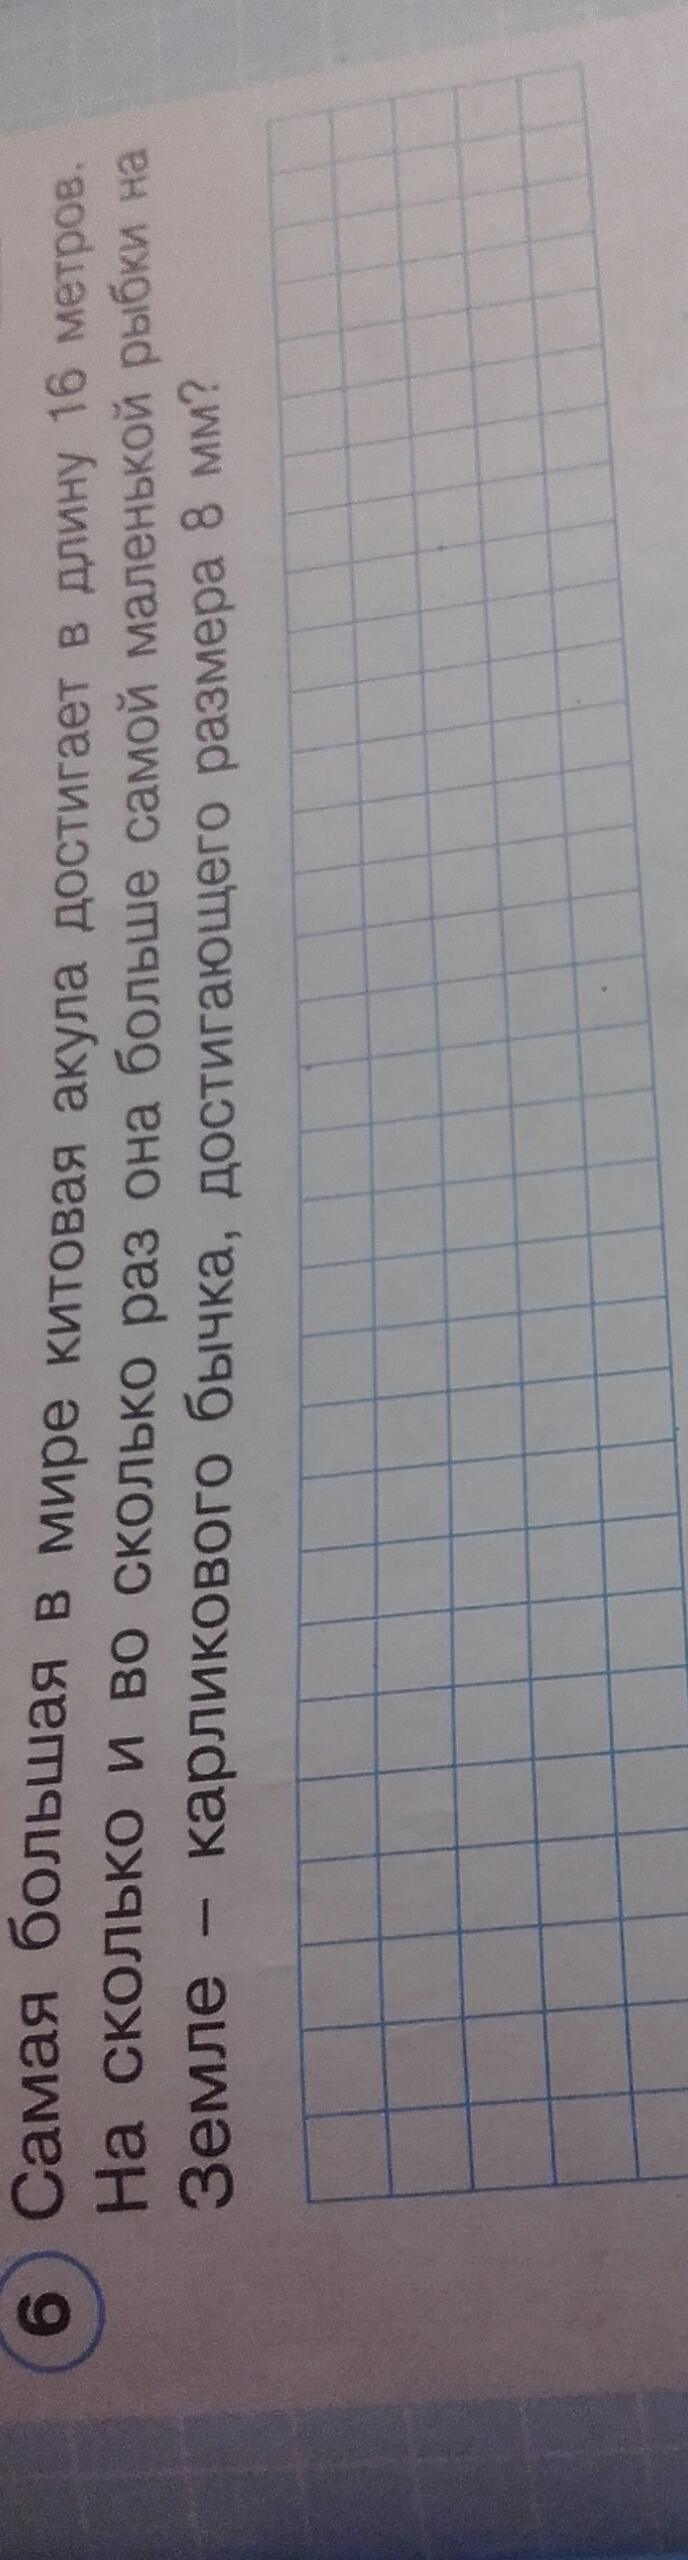 6 Самая большая в мире китовая акула достигает в длину 16 метров.
На сколько и во сколько раз она больше самой маленькой рыбки на
Земле – карликового бычка, достигающего размера 8 мм?